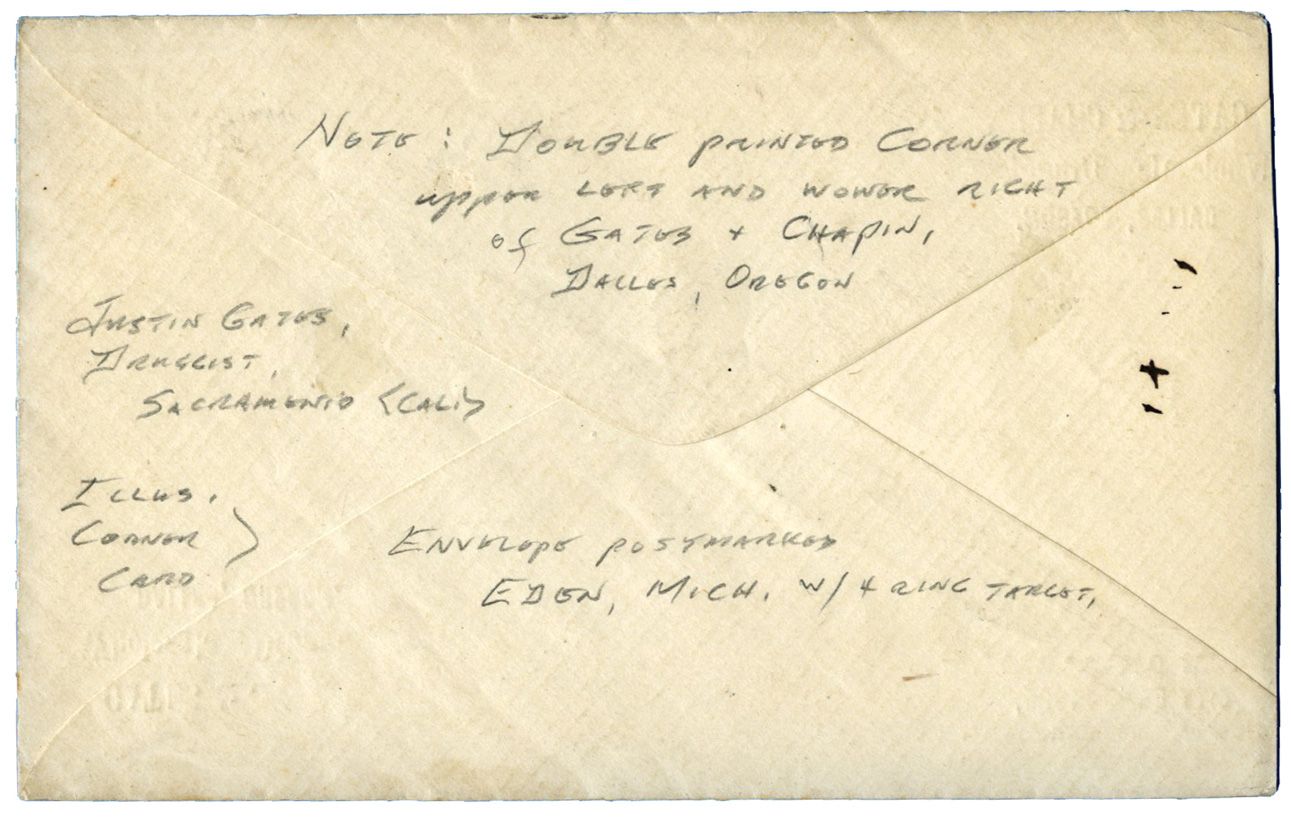 NOTE: DOUBLE PRINTED CORNER
upper LEFT AND WOWER RIGHT
of GATES + CHAPIN,
DALLES, OREGON
JUSTIN GATES,
DRUGGIST,
SACRAMENTO (CALI)
ILLUS.
CORNER
CARD
ENVELOPE POSTMARKED
EDEN, MICH. W/ 4 RING TARGET,